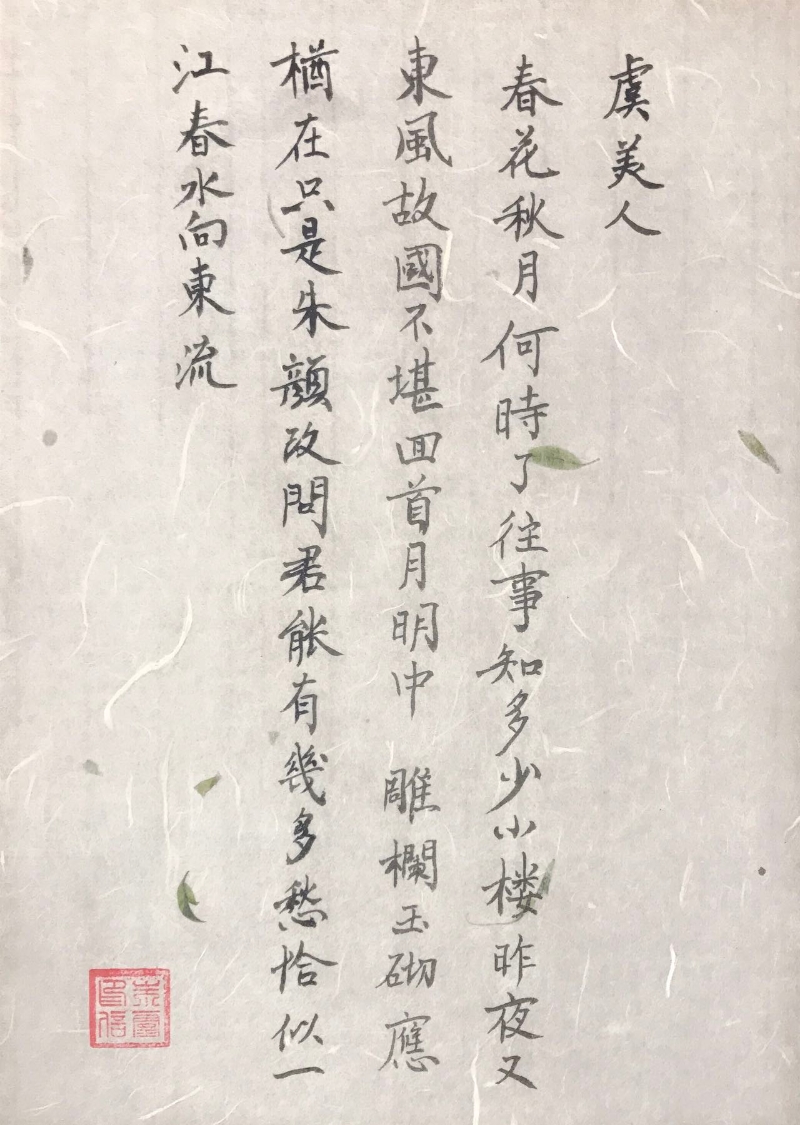 虞美人
春花秋月何時了往事知多少小楼昨夜又
東風故國不堪回首月明中 雕欄玉砌應
楢在只是朱顏改問君能有幾多愁恰似一
江春水向東流